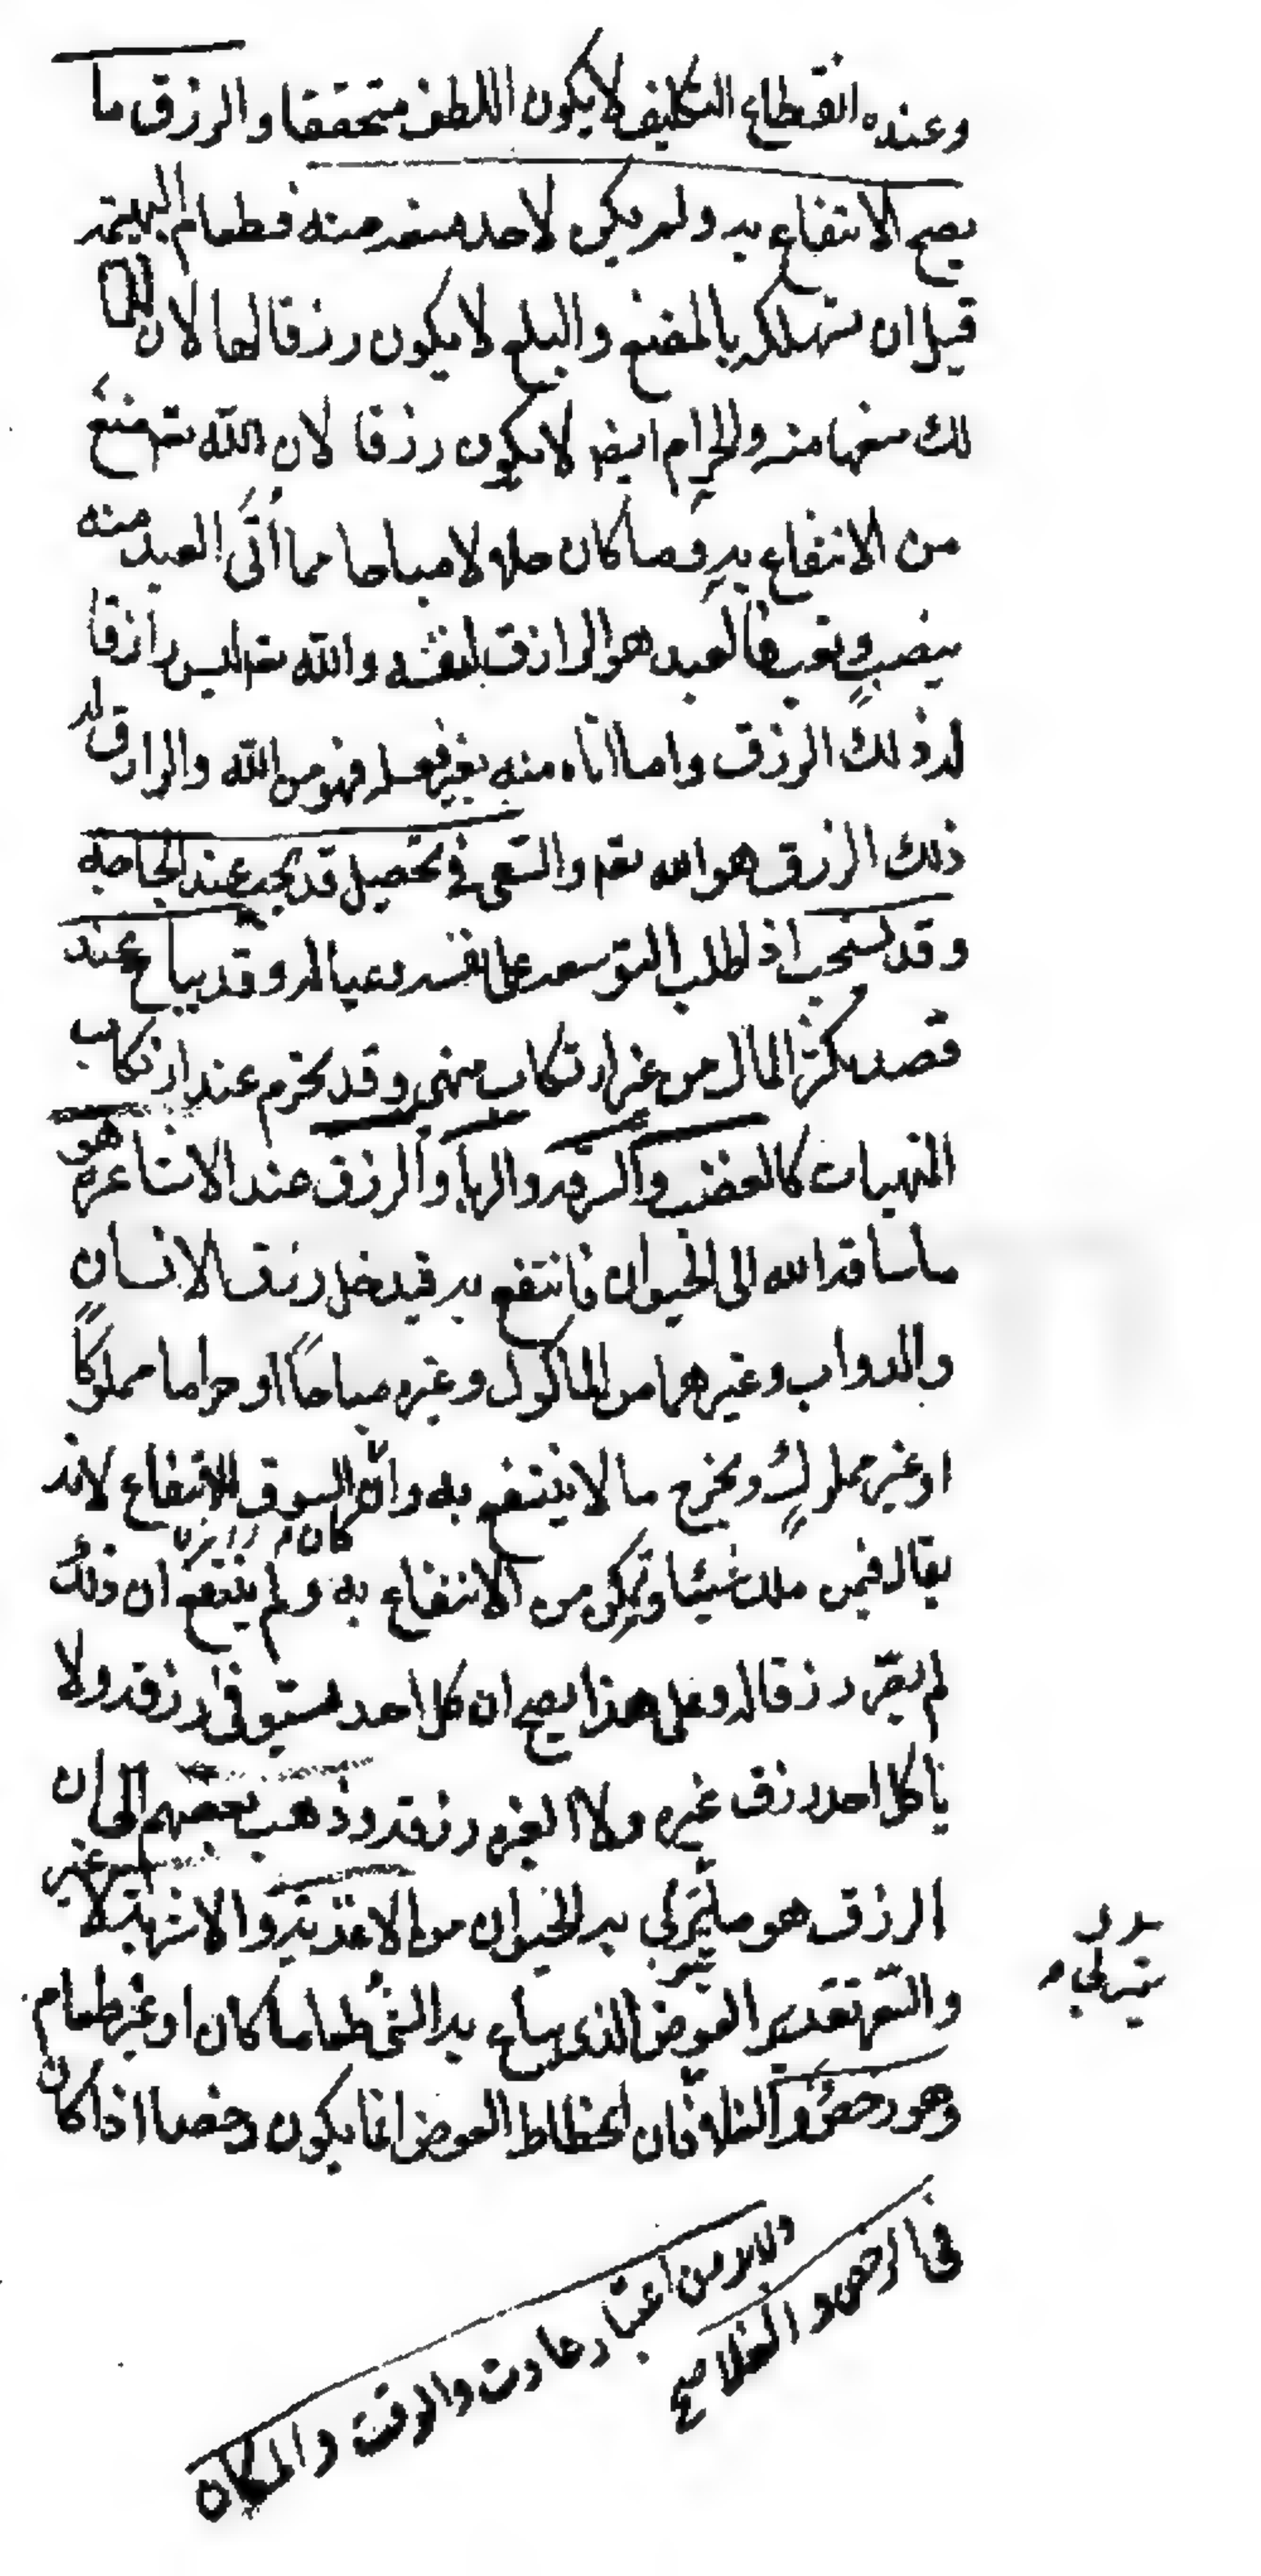 وعنده انقطاع التكليف لا يكون اللطف متحققا والرزق ما
يصح الانتفاع به ولم يكن لاحد منعه منه فطعام البهيمة
قبل ان تستهلكه بالمضغ والبلع لا يكون رزقا لها لان للما
لك منعها منه والحرام ايضا لا يكون رزقا لان الله تعه منع
من الانتفاع به وما كان حله لا مباحا مما أتى العبد منه
بنصب وتعب فالعبد هو الرازق لنفسه والله تعه ليس رازقا
له ذلك الرزق واما اتاه منه بغير فعله فهو من الله والرازق له
ذلك الرزق هو الله تعه والسعى فى تحصيل قد يجب عند الحاجة
وقد يستحب اذ الطلب التوسعه على نفسه وعياله وقد يباح عند
قصد تكثر المال من غير ارتكاب منهى وقد يحرم عند ارتكاب
المنهيات كالغضب والسرقه والربا والرزق عند الاشاعرة هو
ما ساقه الله الى الحيوان فانتفع به فيدخل رزق الانسان
والدواب وغيرهما من الماكول وغيره مباحاً او حراما مملوكاً
او غير مملوكٍ ويخرج ما لا ينتفع به وان كان السوق للانتفاع لانه
يقال فيمن ملك شيئا وتمكن من الانتفاع به ولم ينتفع ان ذلك
لم يقر رزقا له وعلى هذا يصح ان كل احد مستوفى رزقه ولا
ياكل احد رزق غيره ولا الغيره رزقه وذهب بعضهم الى ان
الرزق هو ما يتربى به الحيوان من الاغذية والاشربة لا غير
والسعر تقدير العوض الذى يباع به الشئ طعاما كان او غير طعام
وهو رخص والغلا فان انحطاط العوض انما يكون رخصا اذا كان
يتربى
فى الرخص والغلا صح
ولابد من اعتبار عادت والوقت والمكان